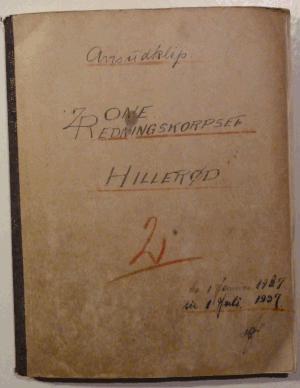 Avisudklip.
ZONE
REDNINGSKORPSET
HILLERØD
2
1 Januar 1937
1 Juli. 1937